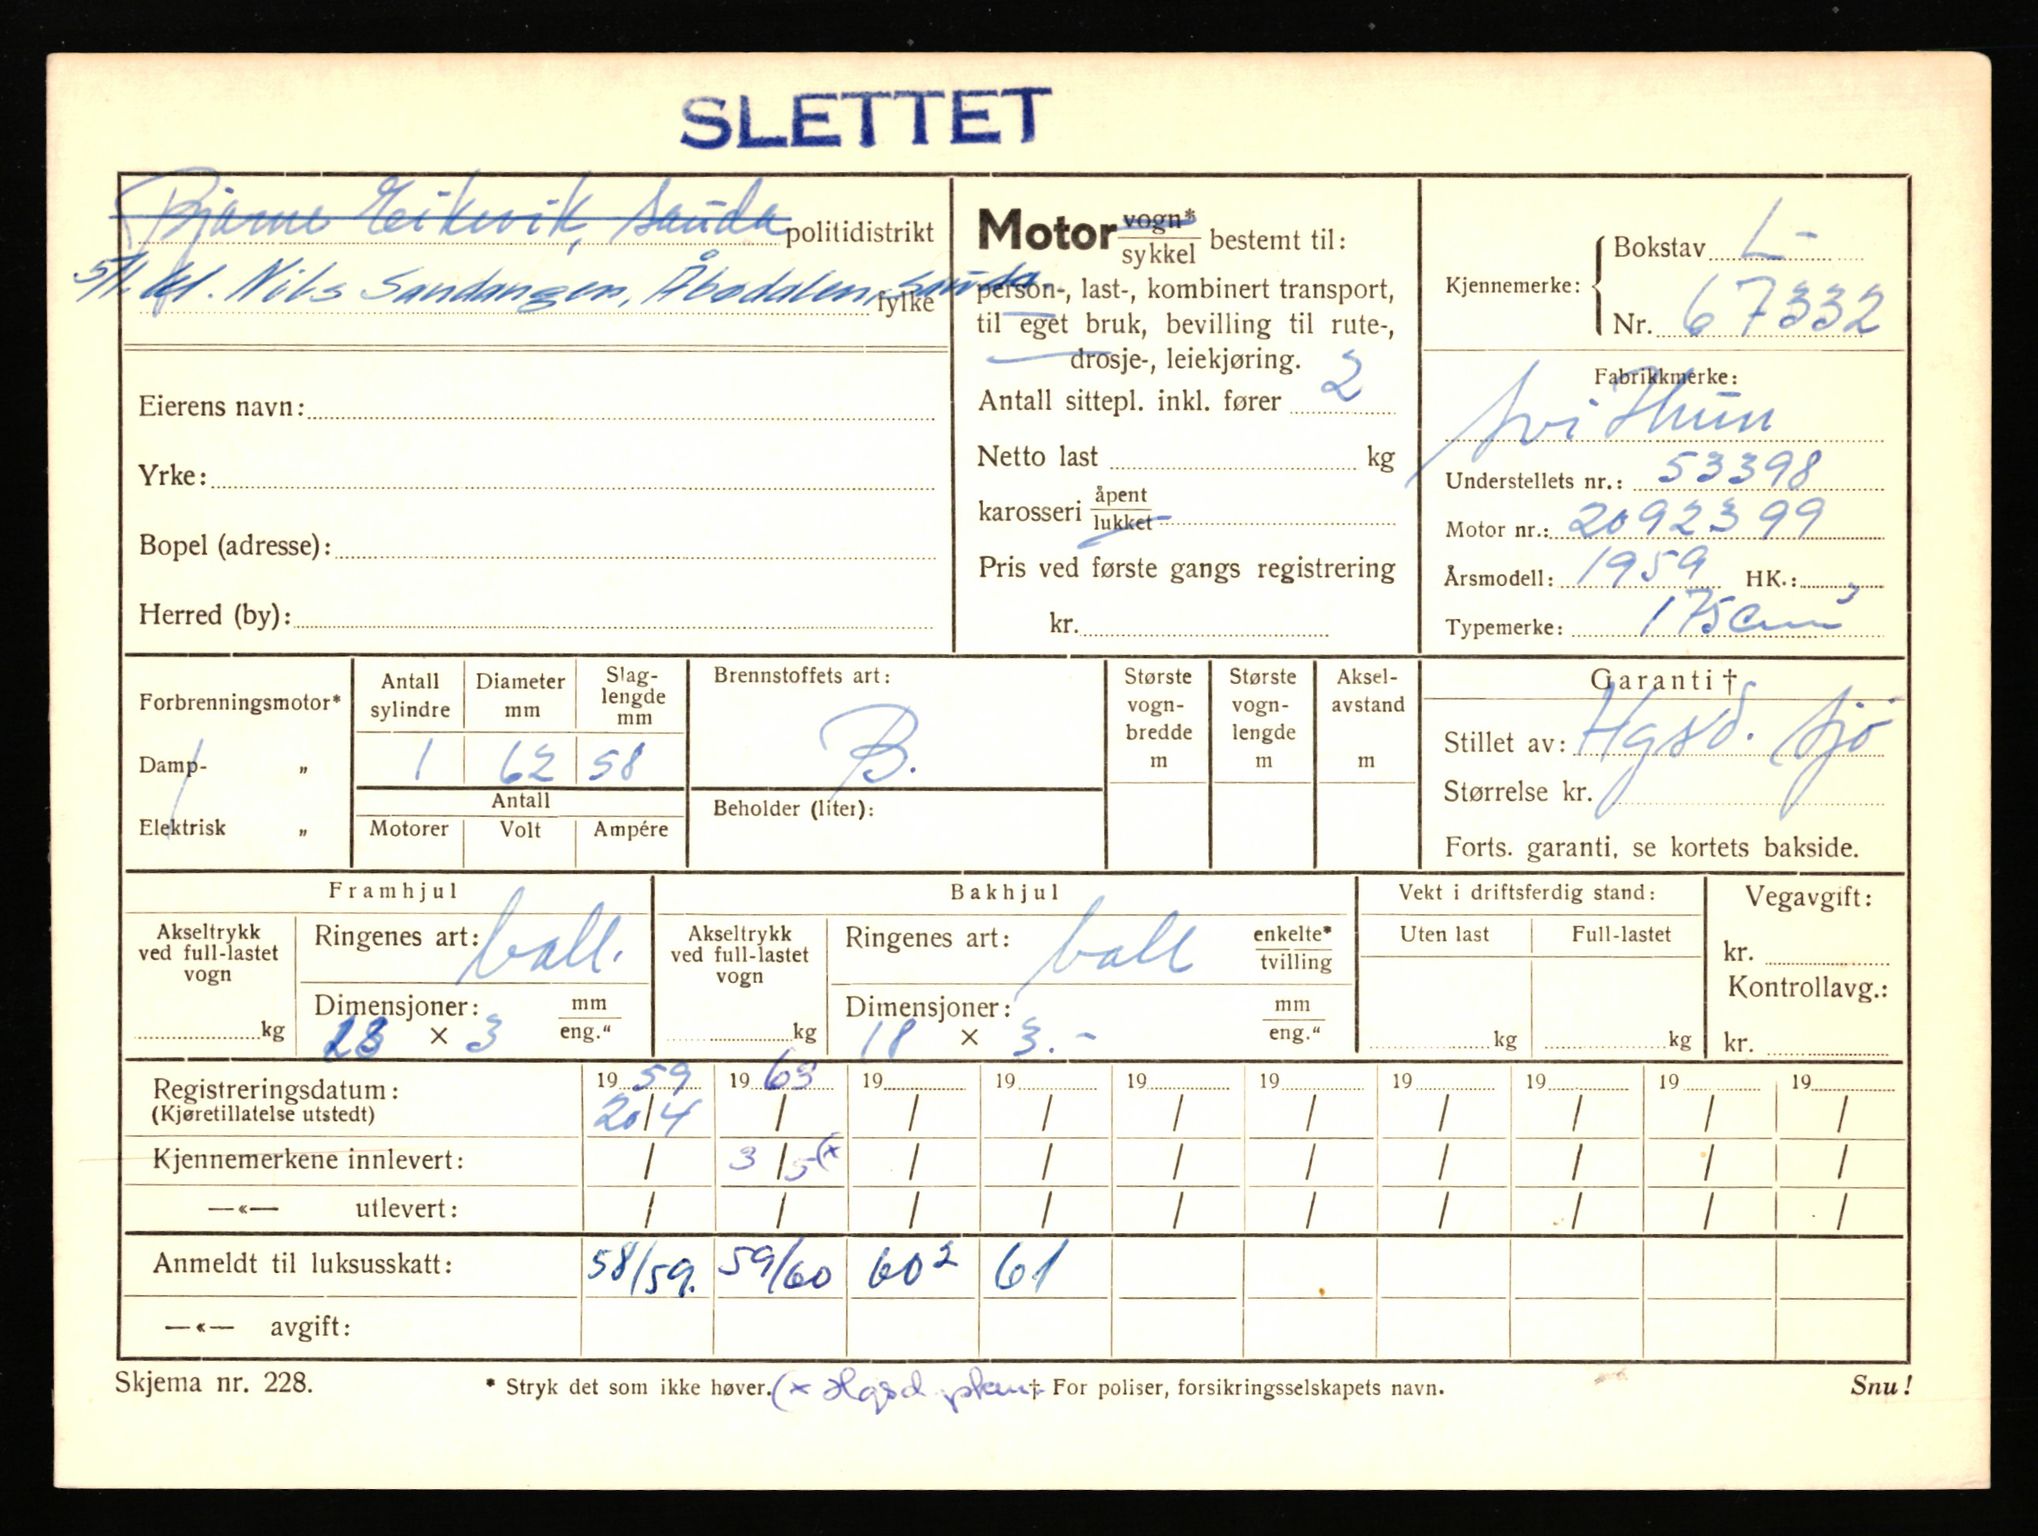 SLETTET
Bjarne Eikevik, Sauda politidistrikt
5/1. kl. Nils Sandangen, Åbødalen, Sauda
fylke
Eierens navn:
Yrke:
Bopel (adresse):
Herred (by):
Motor vogn* / sykkel bestemt til:
person-, last-, kombinert transport,
til eget bruk, bevilling til rute-,
drosje-, leiekjøring.
Antall sittepl. inkl. fører 2
Netto last kg
karosseri åpent / lukket
Pris ved første gangs registrering
kr.
Kjennemerke: { Bokstav L-
Nr. 67332
Fabrikkmerke:
Svithun
Understellets nr.: 53398
Motor nr.: 2092399
Årsmodell: 1959 HK.:
Typemerke: 175 cm³
Forbrenningsmotor*
Damp- „
Elektrisk „
Antall sylindre 1
Diameter mm 62
Slag-lengde mm 58
Antall
Motorer Volt Ampére
Brennstoffets art:
B.
Beholder (liter):
Største vogn-bredde m
Største vogn-lengde m
Aksel-avstand m
Garanti †
Stillet av: Hgsd. Sjø
Størrelse kr.
Forts. garanti, se kortets bakside.
Framhjul
Akseltrykk ved full-lastet vogn
kg
Ringenes art: ball.
Dimensjoner: mm / eng."
18 × 3
Bakhjul
Akseltrykk ved full-lastet vogn
kg
Ringenes art: ball enkelte* / tvilling
Dimensjoner: mm / eng."
18 × 3.-
Vekt i driftsferdig stand:
Uten last Full-lastet
kg kg
Vegavgift:
kr.
Kontrollavg.:
kr.
Registreringsdatum: 19 59 19 63 19 19 19 19 19 19 19 19
(Kjøretillatelse utstedt) 20/4 / / / / / / / / /
Kjennemerkene innlevert: / 3/5 (x / / / / / / / /
—«— utlevert: / / / / / / / / / /
Anmeldt til luksusskatt: 58/59. 59/60 60² 61
—«— avgift:
Skjema nr. 228. * Stryk det som ikke høver. (x Hgsd † For poliser, forsikringsselskapets navn. Snu!